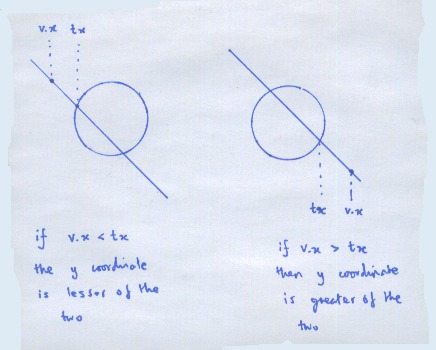 v.x tx
if v.x < tx
the y coordinate
is lesser of the
two
tx v.x
if v.x > tx
then y coordinate
is greater of the
two